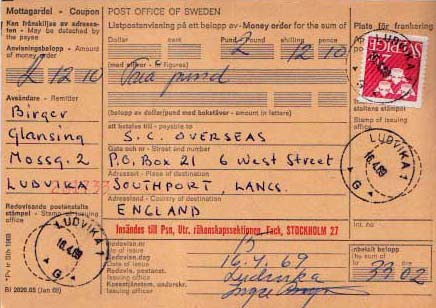 Mottagardel - Coupon
Kan frånskiljas av adressaten - May be detached by the payee
Anvisningsbelopp - Amount of money order
£ 12.10
Avsändare - Remitter
Birger
Glansing
Mossg. 2
LUDVIKA
Redovisande postanstalts stämpel - Stamp of issuing office
LUDVIKA 1
16.4.69
G
Bl 2020.05 (Jan 69)
POST OFFICE OF SWEDEN
Listpostanvisning på ett belopp av - Money order for the sum of
Dollar
cent
Pund - Pound
shilling
2 12 10
(med siffror - in figures)
Två pund
(belopp av dollar/pund med bokstäver - amount in words)
att betalas till - payable to
S.C. OVERSEAS
Gata och nr - Street and number
P.O. BOX 21 6 West Street
Adressort - Place of destination
SOUTHPORT, LANCS.
Adressland - Country of destination
ENGLAND
Insändes till Psn, Utr. räkenskapssektionen, Fack, STOCKHOLM 27
Redovisn.nr
Date of issue
16.4.69
Redovisn. postanst.
Issuing office
Ludvika
Plats för frankering
SVERIGE
LUDVIKA 1
Stamp of issuing office
LUDVIKA 1
16.4.69
G
Int. no
Inbetalt belopp
33.02